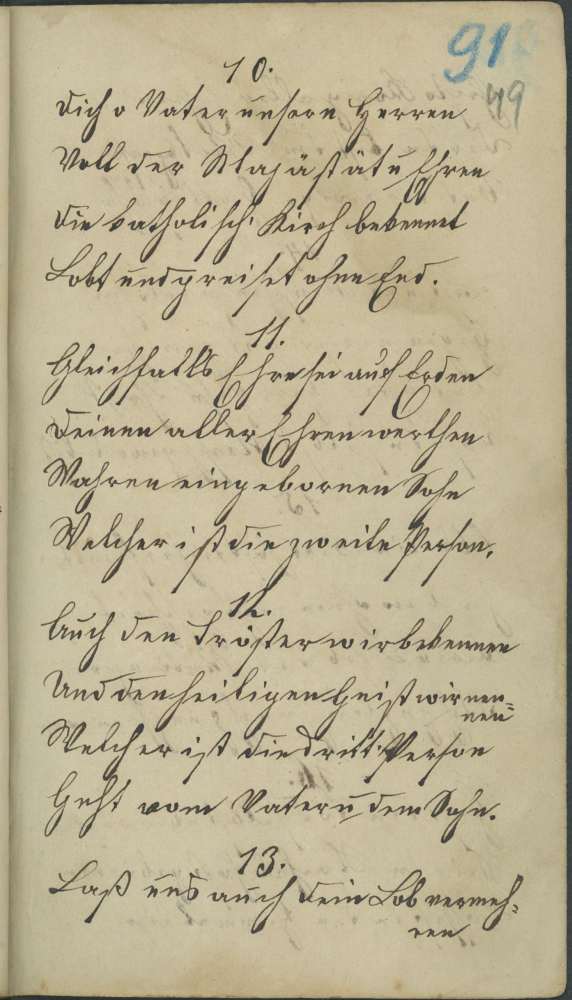 91
49
10.
Dich o Vater unsern Herren
Voll der Majästät u Ehren
Die katholisch' Kirch bekennet
Lobt und preiset ohne End.
11.
Gleichfalls Ehre sei auf Erden
Deinen aller Ehren werthen
Wahren eingebornen Sohn
Welcher ist die zweite Person.
12.
Auch den Tröster wir bekennen
Und den heiligen Geist wir nen=
nen
Welcher ist die dritt' Person
Geht vom Vater u dem Sohn.
13.
Laß uns auch dein Lob vermeh=
ren